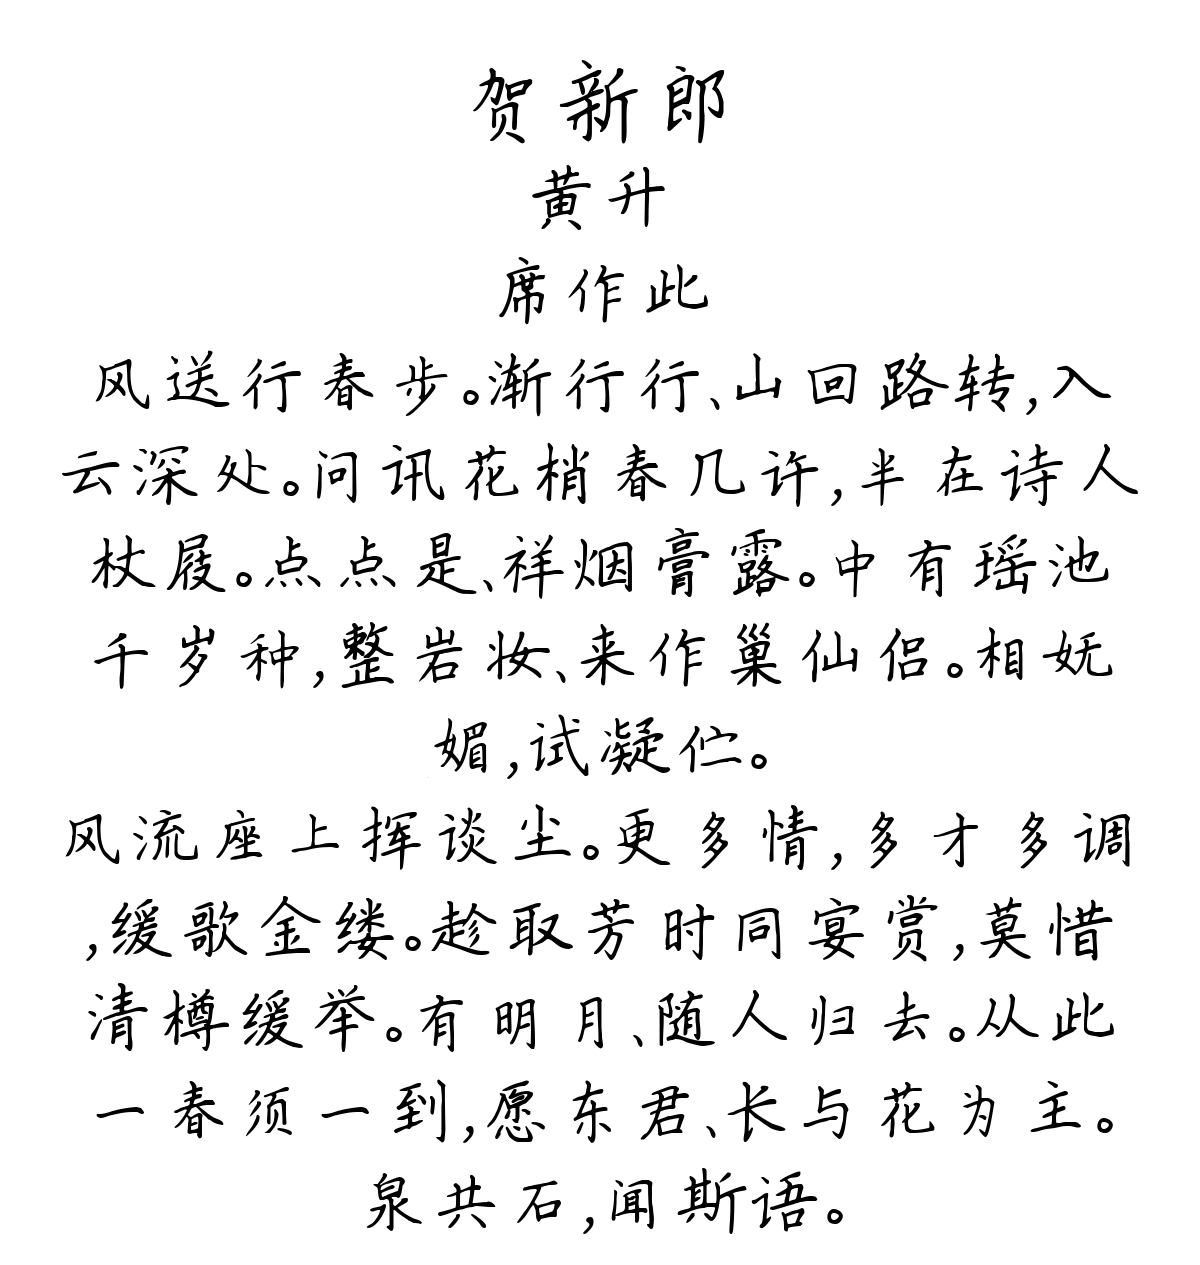 贺新郎
黄升
席作此
风送行春步。渐行行、山回路转,入
云深处。问讯花梢春几许,半在诗人
杖屐。点点是、祥烟膏露。中有瑶池
千岁种,整岩妆、来作巢仙侣。相妩
媚,试凝伫。
风流座上挥谈尘。更多情,多才多调
,缓歌金缕。趁取芳时同宴赏,莫惜
清樽缓举。有明月、随人归去。从此
一春须一到,愿东君、长与花为主。
泉共石,闻斯语。